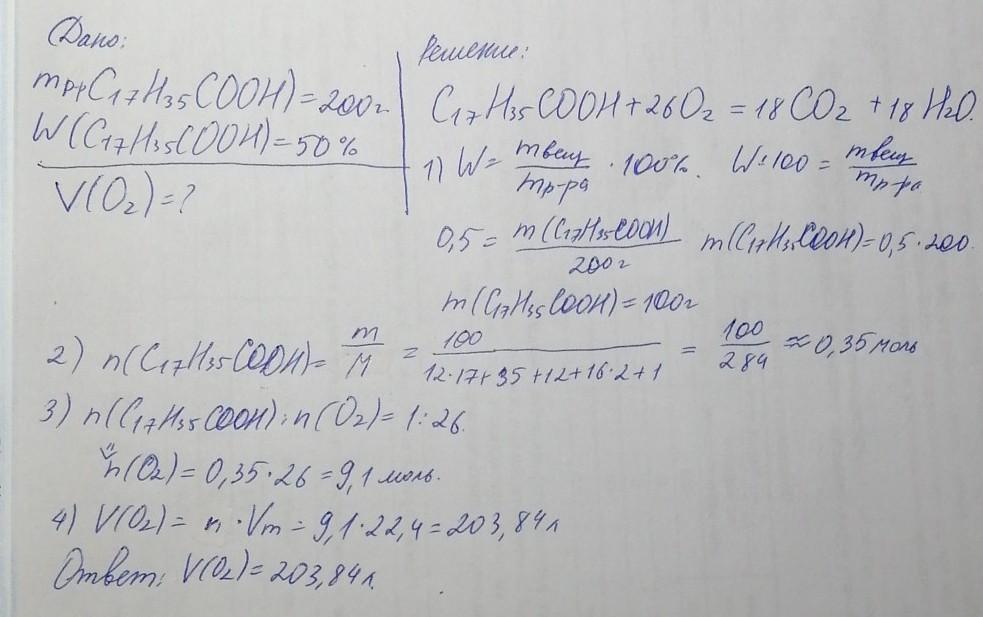 Дано:
mр-р(C₁₇H₃₅COOH) = 200г.
W(C₁₇H₃₅COOH) = 50%
V(O₂) = ?
Решение:
C₁₇H₃₅COOH + 26O₂ = 18CO₂ + 18H₂O.
1) W = mвещ / mр-ра · 100%. W : 100 = mвещ / mр-ра
0,5 = m(C₁₇H₃₅COOH) / 200г m(C₁₇H₃₅COOH) = 0,5 · 200.
m(C₁₇H₃₅COOH) = 100г
2) n(C₁₇H₃₅COOH) = m / M = 100 / 12·17+35+12+16·2+1 = 100 / 284 ≈ 0,35 моль
3) n(C₁₇H₃₅COOH) : n(O₂) = 1 : 26.
n(O₂) = 0,35 · 26 = 9,1 моль.
4) V(O₂) = n · Vm = 9,1 · 22,4 = 203,84л
Ответ: V(O₂) = 203,84л.